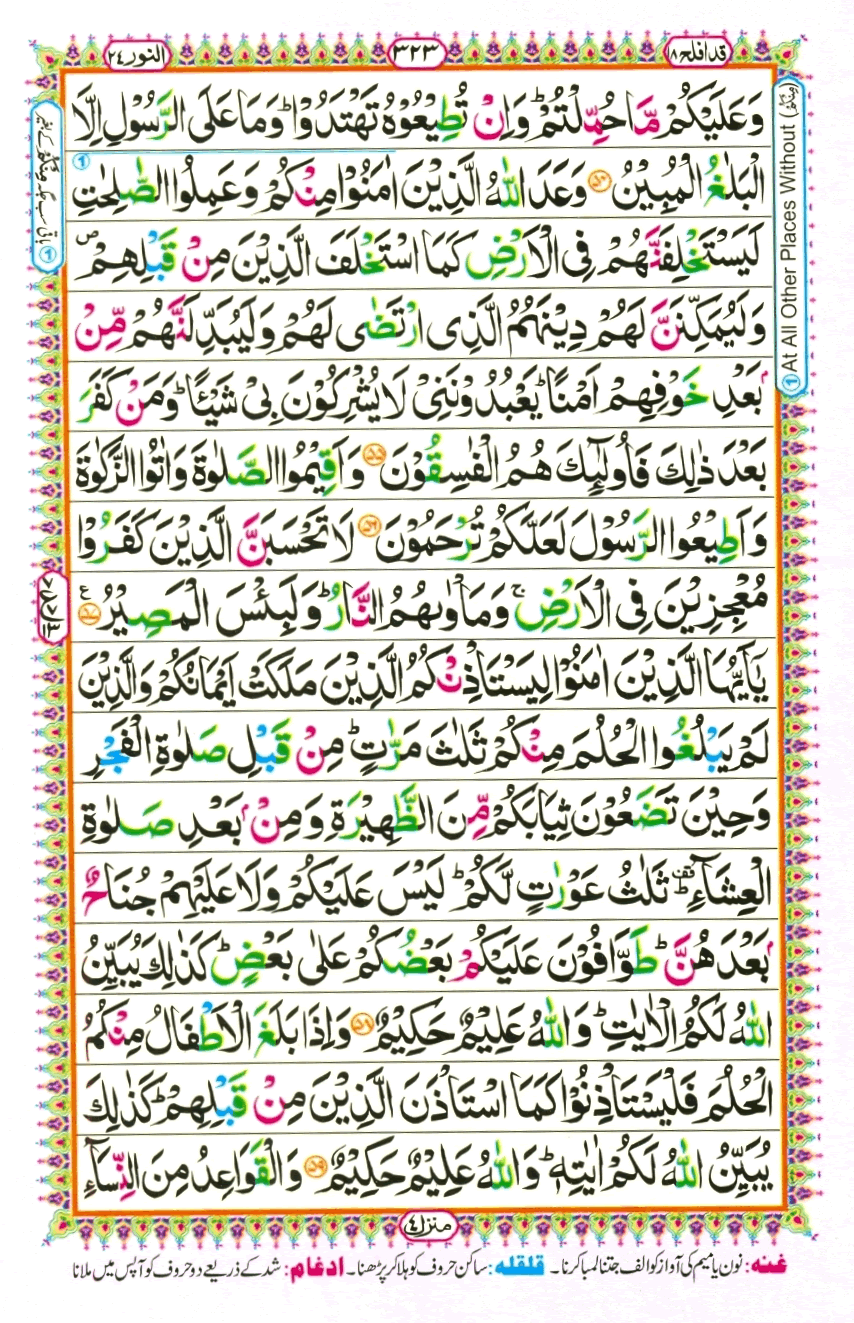 قد افلح ۱۸
۳۲۳
النور ۲۴
وَعَلَيْكُمْ مَّا حُمِّلْتُمْ ؕ وَاِنْ تُطِيْعُوْهُ تَهْتَدُوْا ؕ وَمَا عَلَى الرَّسُوْلِ اِلَّا
الْبَلٰغُ الْمُبِيْنُ ﴿۵۴﴾ وَعَدَ اللّٰهُ الَّذِيْنَ اٰمَنُوْا مِنْكُمْ وَعَمِلُوا الصّٰلِحٰتِ
لَيَسْتَخْلِفَنَّهُمْ فِى الْاَرْضِ كَمَا اسْتَخْلَفَ الَّذِيْنَ مِنْ قَبْلِهِمْ ۪
وَلَيُمَكِّنَنَّ لَهُمْ دِيْنَهُمُ الَّذِى ارْتَضٰى لَهُمْ وَلَيُبَدِّلَنَّهُمْ مِّنْۢ
بَعْدِ خَوْفِهِمْ اَمْنًا ؕ يَعْبُدُوْنَنِىْ لَا يُشْرِكُوْنَ بِىْ شَيْـًٔا ؕ وَمَنْ كَفَرَ
بَعْدَ ذٰلِكَ فَاُولٰٓئِكَ هُمُ الْفٰسِقُوْنَ ﴿۵۵﴾ وَاَقِيْمُوا الصَّلٰوةَ وَاٰتُوا الزَّكٰوةَ
وَاَطِيْعُوا الرَّسُوْلَ لَعَلَّكُمْ تُرْحَمُوْنَ ﴿۵۶﴾ لَا تَحْسَبَنَّ الَّذِيْنَ كَفَرُوْا
مُعْجِزِيْنَ فِى الْاَرْضِ ۚ وَمَاْوٰىهُمُ النَّارُ ؕ وَلَبِئْسَ الْمَصِيْرُ ﴿۵۷﴾ ع
يٰۤاَيُّهَا الَّذِيْنَ اٰمَنُوْا لِيَسْتَاْذِنْكُمُ الَّذِيْنَ مَلَكَتْ اَيْمَانُكُمْ وَالَّذِيْنَ
لَمْ يَبْلُغُوا الْحُلُمَ مِنْكُمْ ثَلٰثَ مَرّٰتٍ ؕ مِنْ قَبْلِ صَلٰوةِ الْفَجْرِ
وَحِيْنَ تَضَعُوْنَ ثِيَابَكُمْ مِّنَ الظَّهِيْرَةِ وَمِنْۢ بَعْدِ صَلٰوةِ
الْعِشَآءِ ؕ قف ثَلٰثُ عَوْرٰتٍ لَّكُمْ ؕ لَيْسَ عَلَيْكُمْ وَلَا عَلَيْهِمْ جُنَاحٌۢ
بَعْدَهُنَّ ؕ طَوّٰفُوْنَ عَلَيْكُمْ بَعْضُكُمْ عَلٰى بَعْضٍ ؕ كَذٰلِكَ يُبَيِّنُ
اللّٰهُ لَكُمُ الْاٰيٰتِ ؕ وَاللّٰهُ عَلِيْمٌ حَكِيْمٌ ﴿۵۸﴾ وَاِذَا بَلَغَ الْاَطْفَالُ مِنْكُمُ
الْحُلُمَ فَلْيَسْتَاْذِنُوْا كَمَا اسْتَاْذَنَ الَّذِيْنَ مِنْ قَبْلِهِمْ ؕ كَذٰلِكَ
يُبَيِّنُ اللّٰهُ لَكُمْ اٰيٰتِهٖ ؕ وَاللّٰهُ عَلِيْمٌ حَكِيْمٌ ﴿۵۹﴾ وَالْقَوَاعِدُ مِنَ النِّسَآءِ
① At All Other Places Without
منزل ۴
غنه: نون یا میم کی آواز کو الف جتنا لمبا کرنا۔ قلقله: ساکن حروف کو ہلا کر پڑھنا۔ ادغام: شد کے ذریعے دو حروف کو آپس میں ملانا